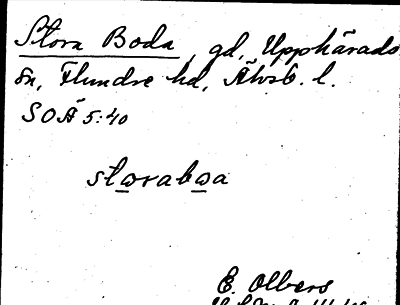 Stora Boda, gd, Upphärads
sn, Flundre hd, Älvsb. l.
SOÄ 5:40
stwrabwa
E. Olbers